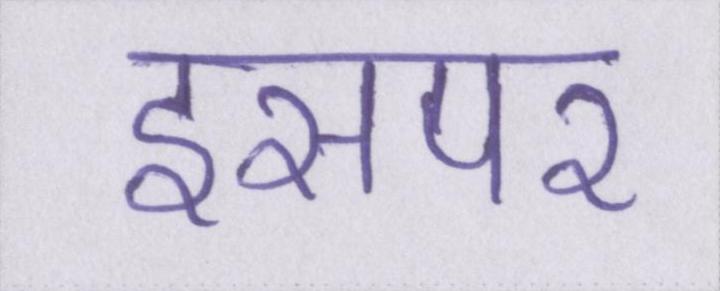 इसपर